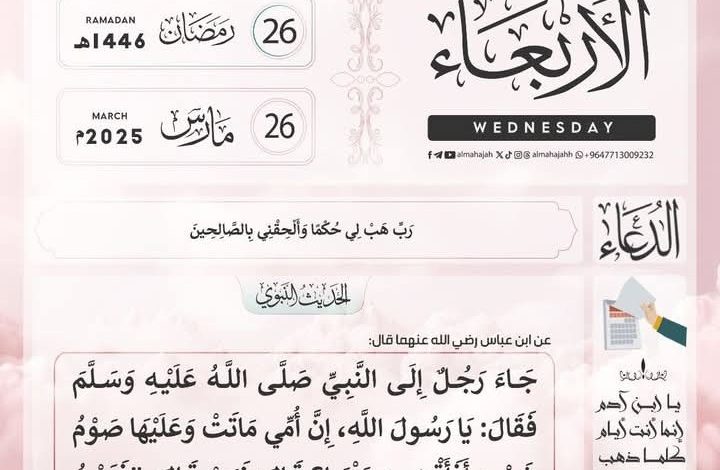 الأربعاء
WEDNESDAY
almahajah almahajahh +9647713009232
26 رمضان RAMADAN 1446هـ
26 مارس MARCH 2025م
الدعاء
رَبِّ هَبْ لِي حُكْمًا وَأَلْحِقْنِي بِالصَّالِحِينَ
الحديث النبوي
عن ابن عباس رضي الله عنهما قال:
جَاءَ رَجُلٌ إِلَى النَّبِيِّ صَلَّى اللَّهُ عَلَيْهِ وَسَلَّمَ
فَقَالَ: يَا رَسُولَ اللَّهِ، إِنَّ أُمِّي مَاتَتْ وَعَلَيْهَا صَوْمُ
يا ابن آدم
إنما أنت أيام
كلما ذهب